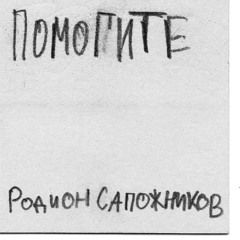 ПОМОГИТЕ
РОДИОН САПОЖНИКОВ